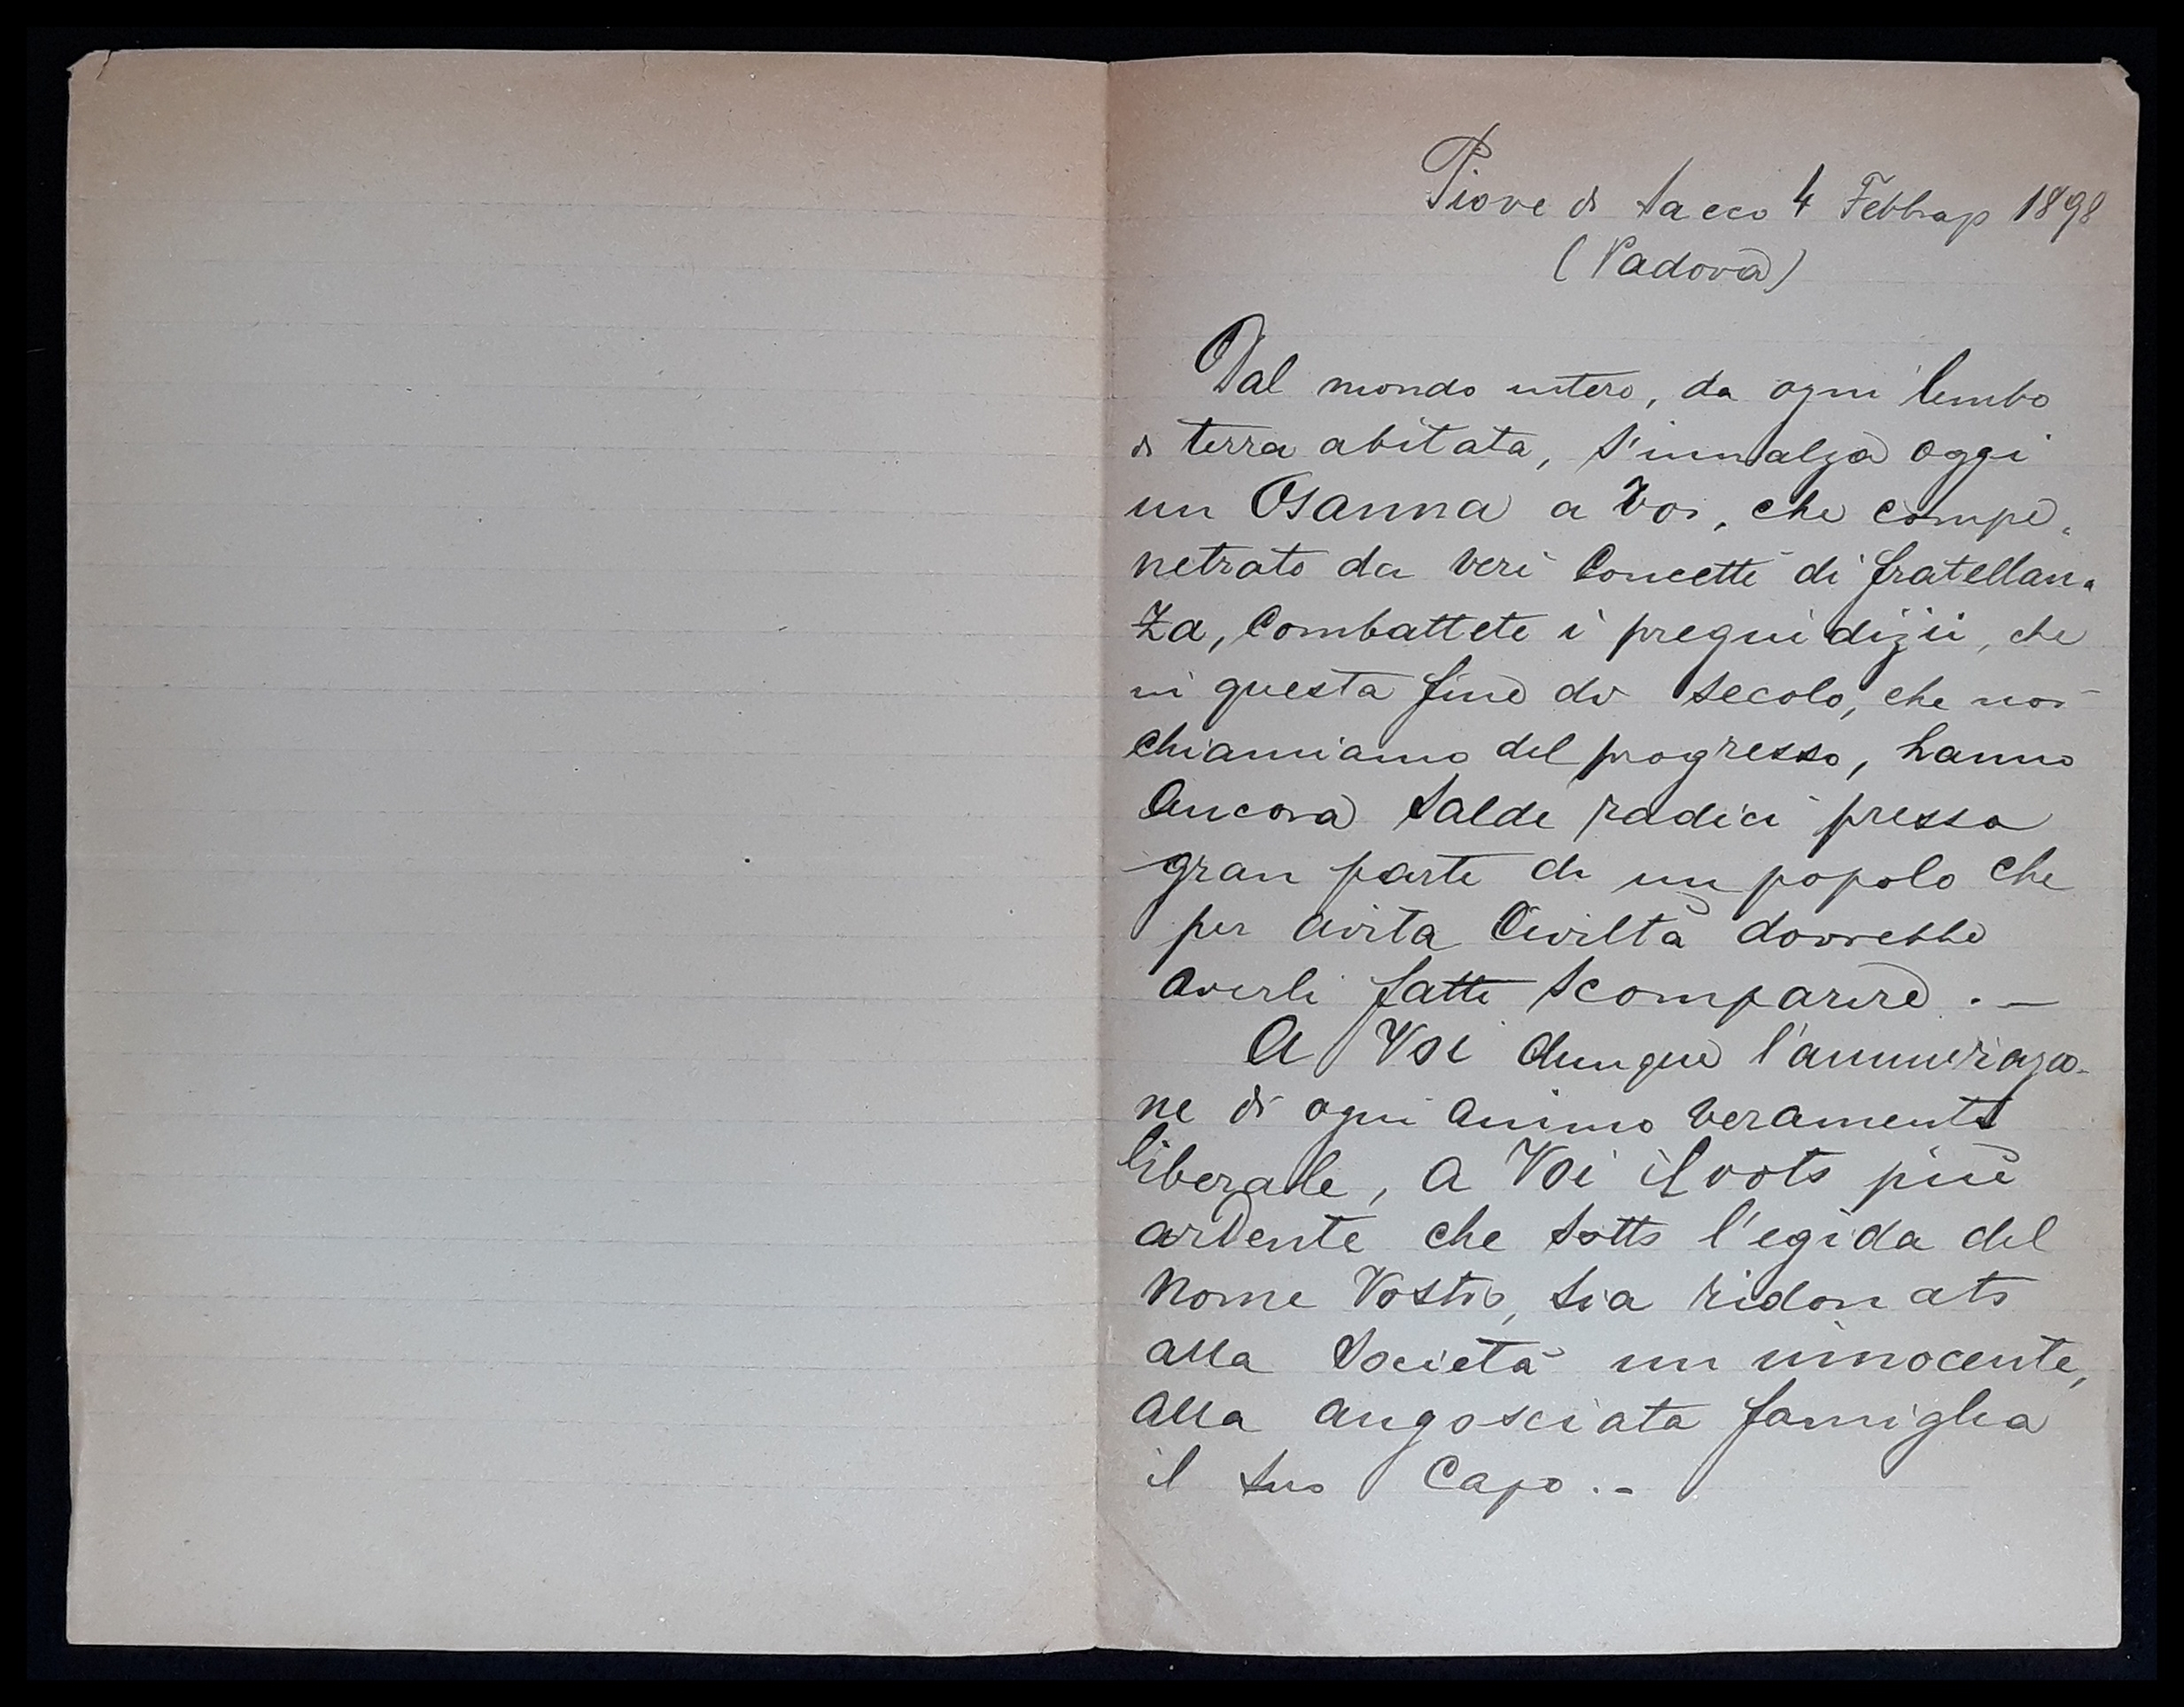 Piove di Sacco 4 Febbrajo 1898
(Padova)
Dal mondo intero, da ogni lembo
di terra abitata, s'innalza oggi
un Osanna a Voi, che compe=
netrato da veri Concetti di fratellan=
za, Combattete i pregiudizii, che
in questa fine di secolo, che noi
chiamiamo del progresso, hanno
ancora salde radici presso
gran parte di un popolo che
per avita Civiltà dovrebbe
averli fatti scomparire. —
A Voi dunque l'ammirazio-
ne di ogni animo veramente
liberale, a Voi il voto più
ardente che sotto l'egida del
Nome Vostro, sia ridonato
alla Società un innocente,
alla angosciata famiglia
il suo Capo. -